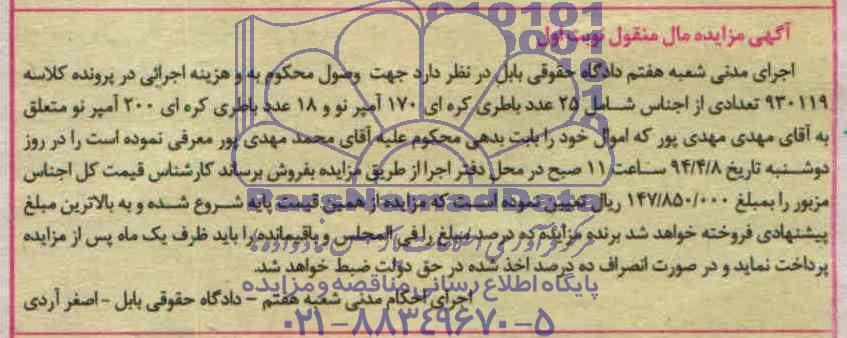 آگهی مزایده مال منقول نوبت اول
اجرای مدنی شعبه هفتم دادگاه حقوقی بابل در نظر دارد جهت وصول محکوم به و هزینه اجرائی در پرونده کلاسه
۹۳۰۱۱۹ تعدادی از اجناس شامل ۲۵ عدد باطری کره ای ۱۷۰ آمپر نو و ۱۸ عدد باطری کره ای ۲۰۰ آمپر نو متعلق
به آقای مهدی مهدی پور که اموال خود را بابت بدهی محکوم علیه آقای محمد مهدی پور معرفی نموده است را در روز
دوشنبه تاریخ ۹۴/۴/۸ ساعت ۱۱ صبح در محل دفتر اجرا از طریق مزایده بفروش برساند کارشناس قیمت کل اجناس
مزبور را بمبلغ ۱۴۷/۸۵۰/۰۰۰ ریال تعیین نموده است که مزایده از همین قیمت پایه شروع شده و به بالاترین مبلغ
پیشنهادی فروخته خواهد شد برنده مزایده ده درصد مبلغ را فی المجلس و باقیمانده را باید ظرف یک ماه پس از مزایده
پرداخت نماید و در صورت انصراف ده درصد اخذ شده در حق دولت ضبط خواهد شد.
اجرای احکام مدنی شعبه هفتم - دادگاه حقوقی بابل - اصغر آردی
ParsNamadData
پایگاه اطلاع رسانی مناقصه و مزایده
۰۲۱-۸۸۳۴۹۶۷۰-۵